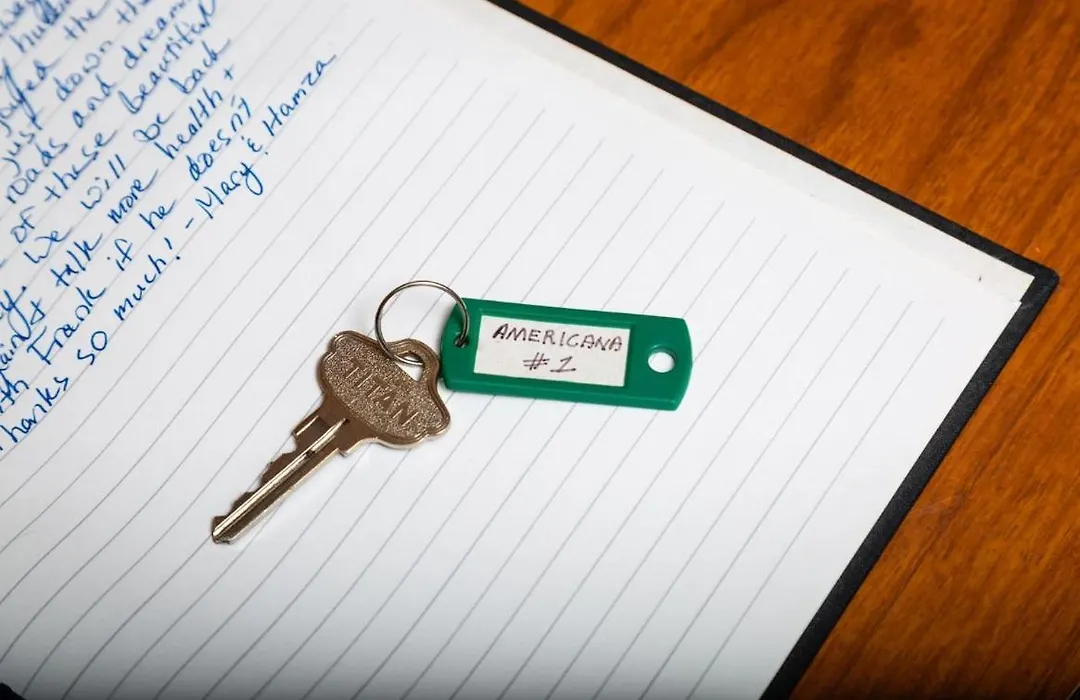 joyed the
just down the
roads and dreami
of these beautiful
we will be back
talk more health +
with Frank if he doesn't
Thanks so much! - Mary & Hamza
TITAN
AMERICANA
#1